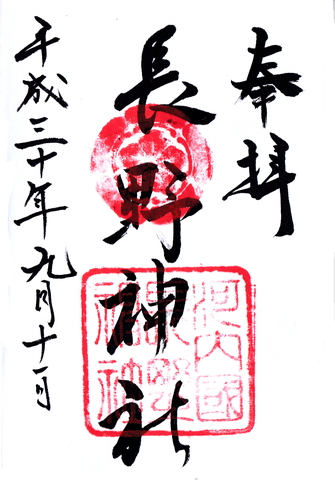 奉拝
長野神社
河内國
長野
神社
平成三十年九月十一日